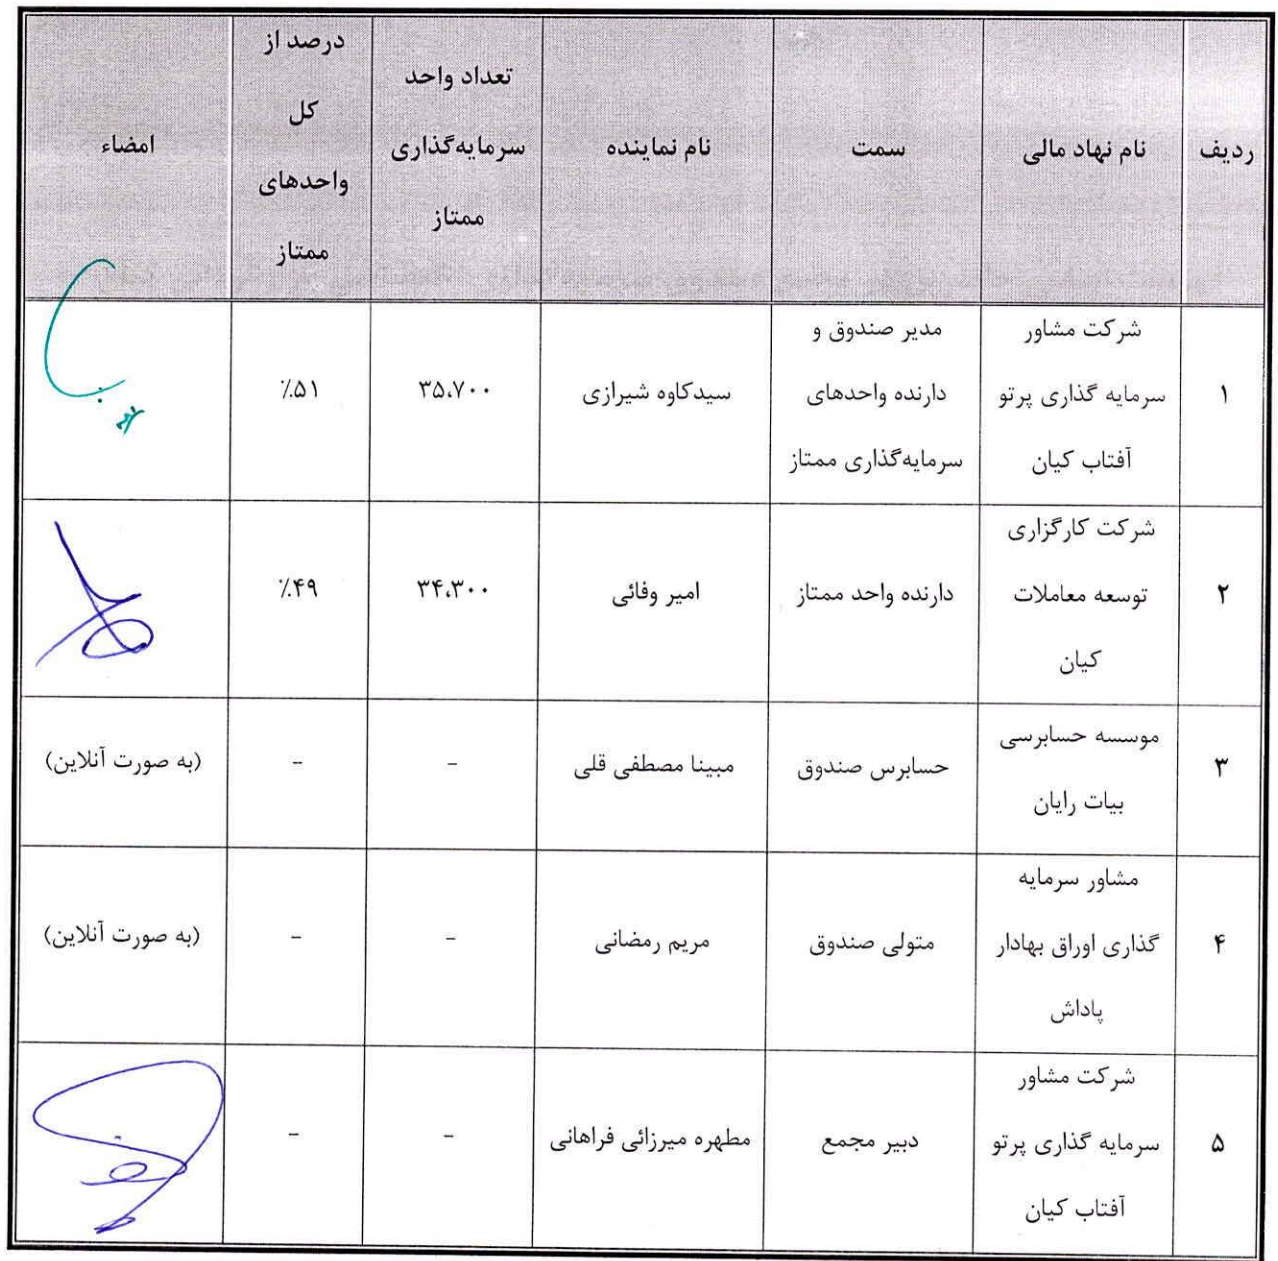 ردیف
نام نهاد مالی
سمت
نام نماینده
تعداد واحد
سرمایه‌گذاری
ممتاز
درصد از
کل
واحدهای
ممتاز
امضاء
۱
شرکت مشاور
سرمایه گذاری پرتو
آفتاب کیان
مدیر صندوق و
دارنده واحدهای
سرمایه‌گذاری ممتاز
سیدکاوه شیرازی
۳۵،۷۰۰
٪۵۱
۲
شرکت کارگزاری
توسعه معاملات
کیان
دارنده واحد ممتاز
امیر وفائی
۳۴،۳۰۰
٪۴۹
۳
موسسه حسابرسی
بیات رایان
حسابرس صندوق
مبینا مصطفی قلی
-
-
(به صورت آنلاین)
۴
مشاور سرمایه
گذاری اوراق بهادار
پاداش
متولی صندوق
مریم رمضانی
-
-
(به صورت آنلاین)
۵
شرکت مشاور
سرمایه گذاری پرتو
آفتاب کیان
دبیر مجمع
مطهره میرزائی فراهانی
-
-